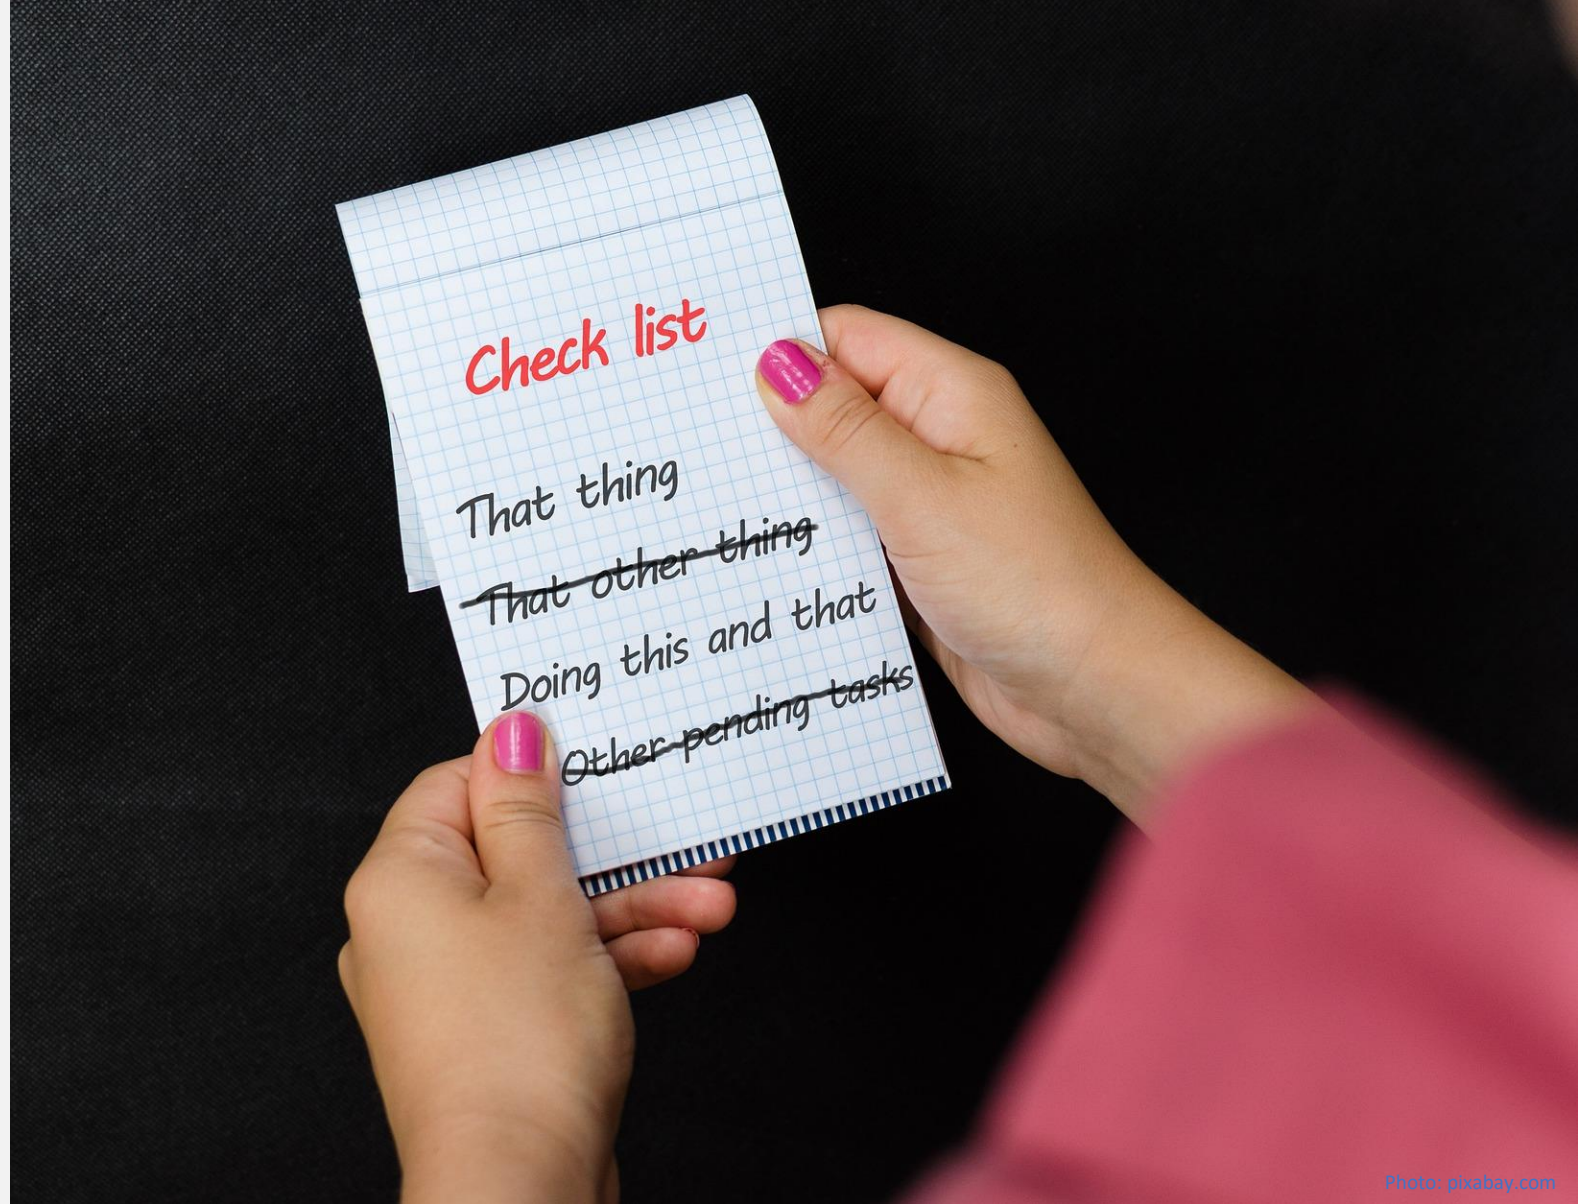 Check list
That thing
That other thing
Doing this and that
Other pending tasks
Photo: pixabay.com